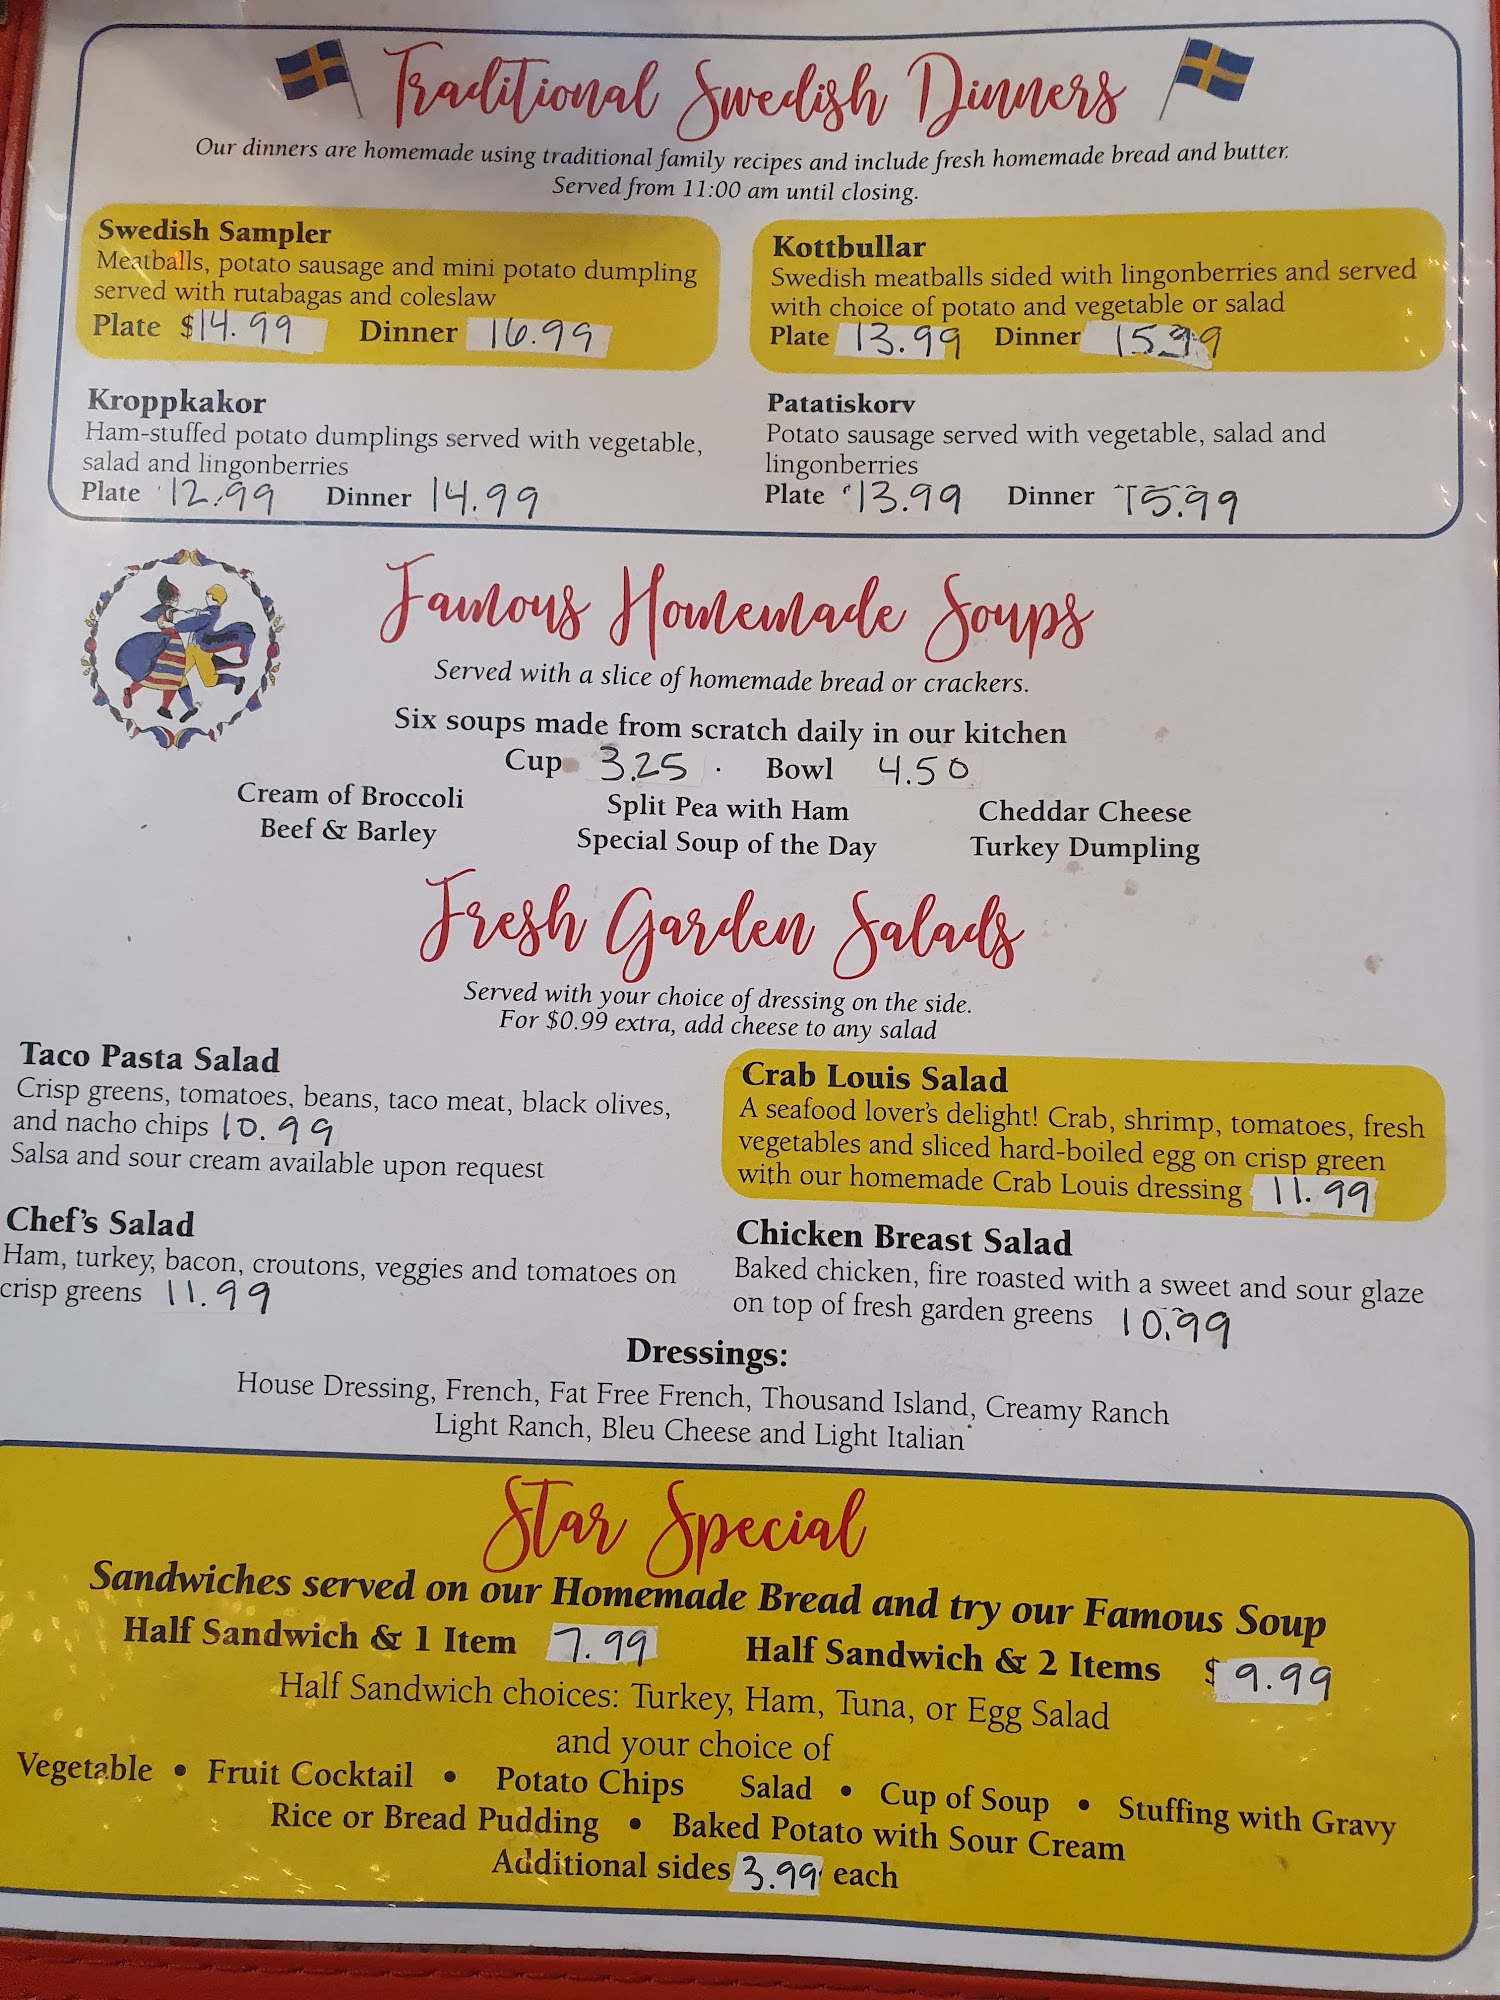 Traditional Swedish Dinners
Our dinners are homemade using traditional family recipes and include fresh homemade bread and butter.
Served from 11:00 am until closing.
Swedish Sampler
Meatballs, potato sausage and mini potato dumpling
served with rutabagas and coleslaw
Plate $14.99 Dinner 16.99
Kottbullar
Swedish meatballs sided with lingonberries and served
with choice of potato and vegetable or salad
Plate 13.99 Dinner 15.99
Kroppkakor
Ham-stuffed potato dumplings served with vegetable,
salad and lingonberries
Plate 12.99 Dinner 14.99
Patatiskorv
Potato sausage served with vegetable, salad and
lingonberries
Plate 13.99 Dinner 15.99
Famous Homemade Soups
Served with a slice of homemade bread or crackers.
Six soups made from scratch daily in our kitchen
Cup 3.25 Bowl 4.50
Cream of Broccoli Split Pea with Ham Cheddar Cheese
Beef & Barley Special Soup of the Day Turkey Dumpling
Fresh Garden Salads
Served with your choice of dressing on the side.
For $0.99 extra, add cheese to any salad
Taco Pasta Salad
Crisp greens, tomatoes, beans, taco meat, black olives,
and nacho chips 10.99
Salsa and sour cream available upon request
Crab Louis Salad
A seafood lover's delight! Crab, shrimp, tomatoes, fresh
vegetables and sliced hard-boiled egg on crisp green
with our homemade Crab Louis dressing 11.99
Chef's Salad
Ham, turkey, bacon, croutons, veggies and tomatoes on
crisp greens 11.99
Chicken Breast Salad
Baked chicken, fire roasted with a sweet and sour glaze
on top of fresh garden greens 10.99
Dressings:
House Dressing, French, Fat Free French, Thousand Island, Creamy Ranch
Light Ranch, Bleu Cheese and Light Italian
Star Special
Sandwiches served on our Homemade Bread and try our Famous Soup
Half Sandwich & 1 Item 7.99 Half Sandwich & 2 Items $9.99
Half Sandwich choices: Turkey, Ham, Tuna, or Egg Salad
and your choice of
Vegetable • Fruit Cocktail • Potato Chips Salad • Cup of Soup • Stuffing with Gravy
Rice or Bread Pudding • Baked Potato with Sour Cream
Additional sides 3.99 each